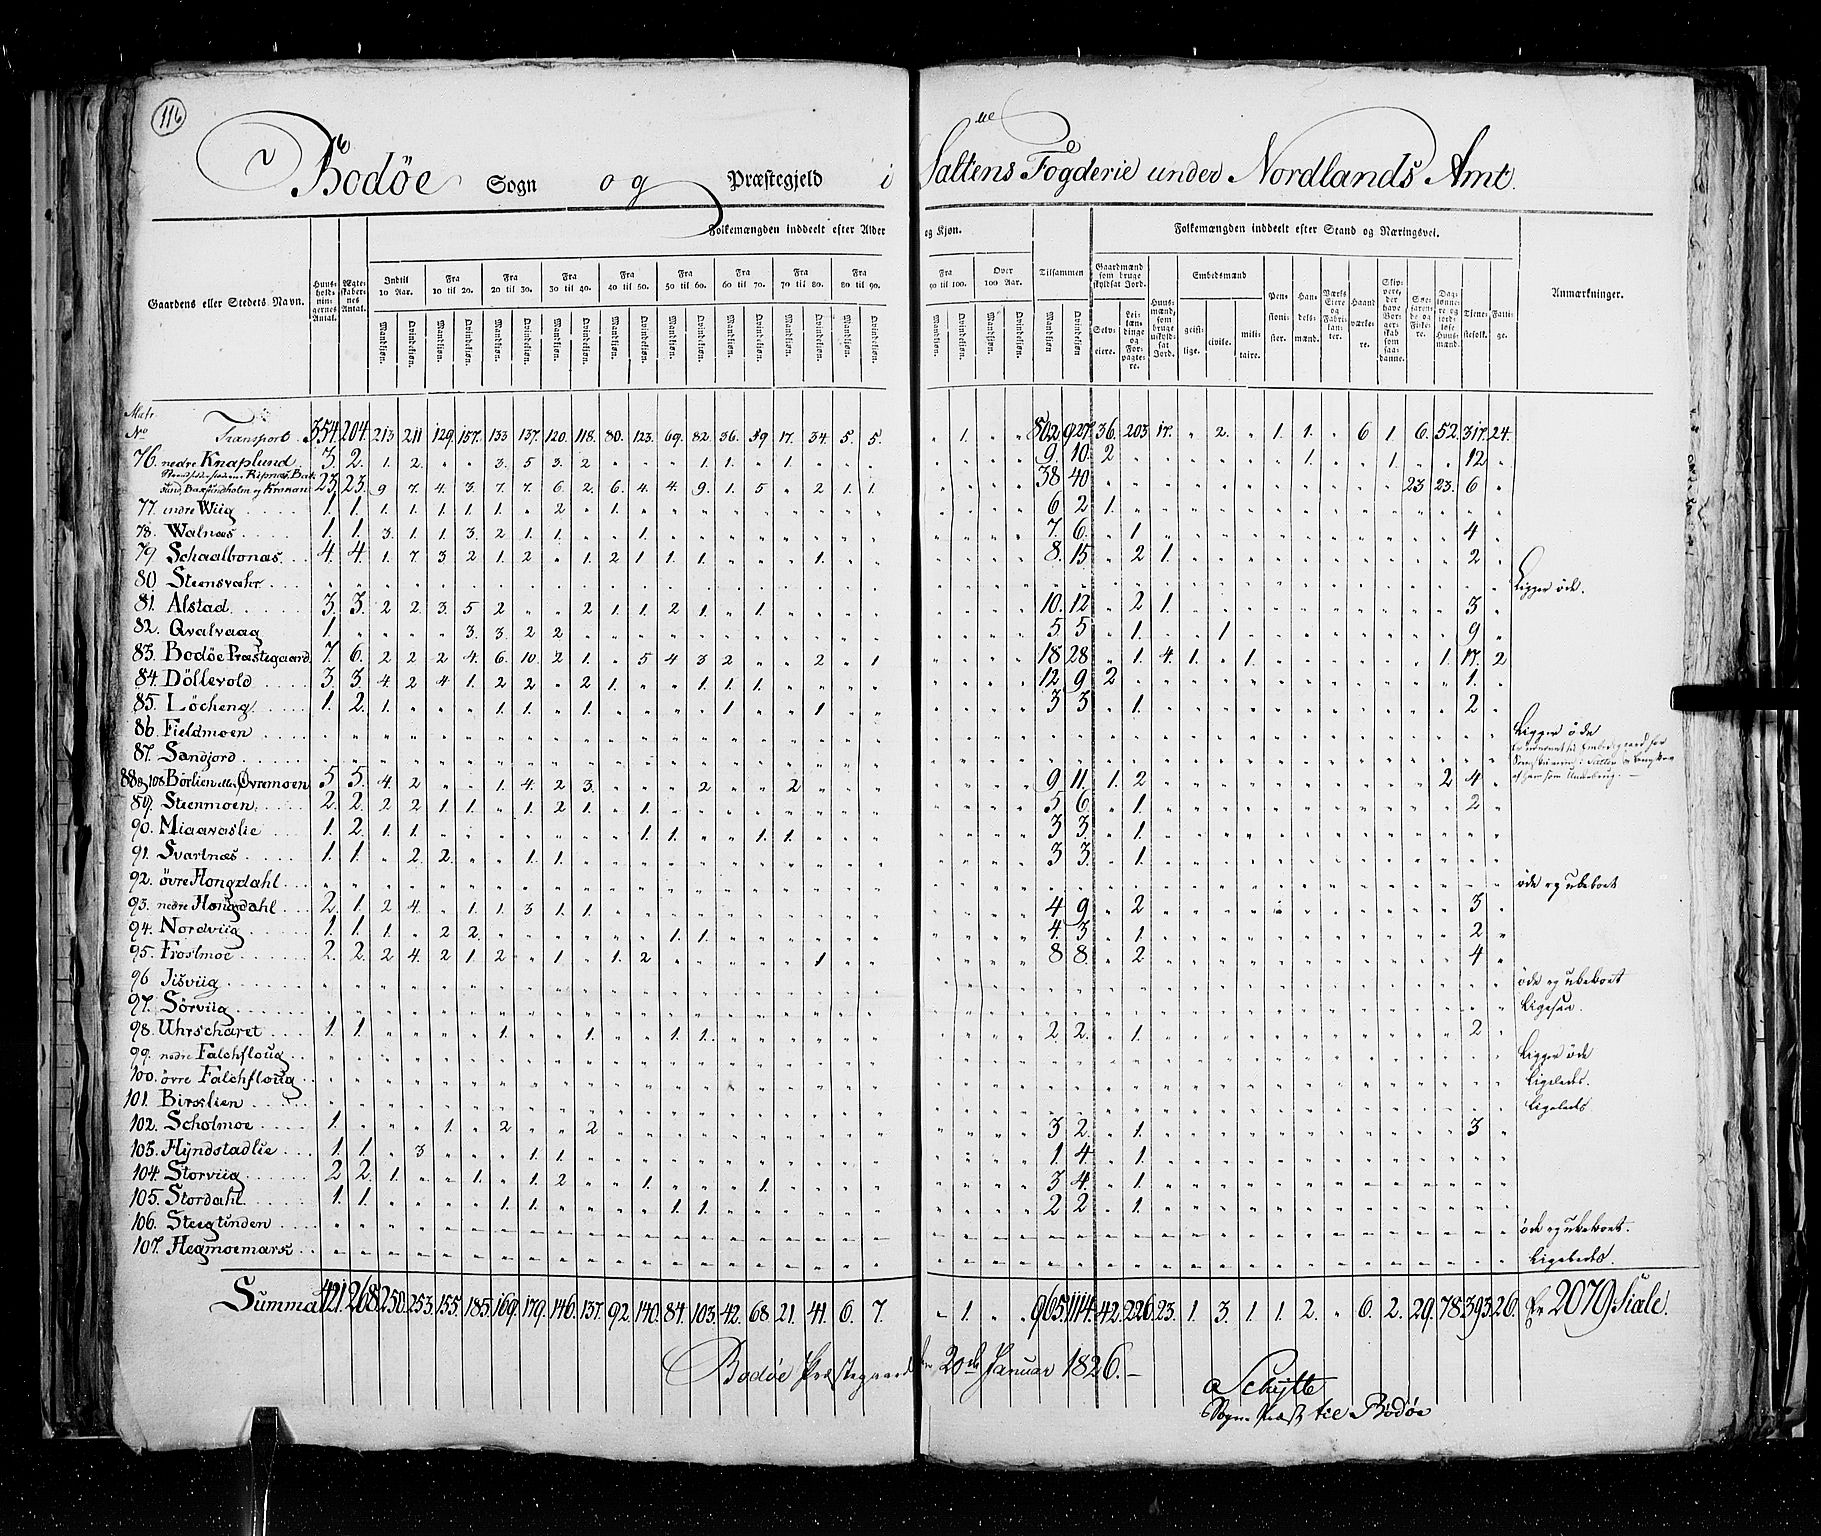 116
Bodöe Sogn og Præstegjeld i Saltens Fogderie under Nordlands Amt.
Folkemængden inddeelt efter Alder og Kjøn.
Folkemængden inddeelt efter Stand og Næringsvei.
Gaardens eller Stedets Navn.
Huusholdningernes Antal.
Ægteskabernes Antal.
Indtil 10 Aar.
Fra 10 til 20.
Fra 20 til 30.
Fra 30 til 40.
Fra 40 til 50.
Fra 50 til 60.
Fra 60 til 70.
Fra 70 til 80.
Fra 80 til 90.
Fra 90 til 100.
Over 100 Aar.
Tilsammen
Mandkjøn. Qvindekjøn.
Gaardmænd som bruge skyldsat Jord.
Selveiere.
Leilændinge og Forpagtere.
Huusmænd, som bruge uskyldsat Jord.
Embedsmænd
geistlige. civile. militaire.
Pensionister.
Handelsmænd.
Værks Eiere og Fabrikanter.
Haandværkere.
Skippere, der have Borgerskab som saadanne.
Søefarende og Fiskere.
Daglønnere og jordløse Huusmænd.
Tienestefolk.
Fattige.
Anmærkninger.
Matr. No
Transport 354. 204. 213 211 129. 157. 133 137. 120. 118. 80. 123. 69. 82. 36. 59 17. 34. 5. 5. " 1. " " 802. 927. 36. 203 17. " 2. " 1. 1. " 6 1. 6. 52. 317. 24.
76. nedre Knaplund 3. 2. 1. 2. " " 3. 5 3. 2 " " " 1. 1. " 1. " " " 9. 10. 2 1. 1. 12
Ripnæs, Bak-
sund, Baksundholm og Kronan 23. 23. 9 7. 4. 3. 7. 7. 6 2. 6. 4. 4. 9. 1. 5 " 2 1. 1. 38 40 23 23. 6
77. indre Wiig 1. 1. 1. 1. 1. 1. 1. " 2 " 1. 6 2 1.
78. Walnæs 1. 1. 3. 1. 1. 3. 2 1. 1. " " 1. 7. 6. 1 4
79 Schaalbonæs 4. 4 1. 7. 3 2 1. 2 " 1. 2 1. 1. 1. 1. 8. 15 2 1. 2
80 Steensvahr Ligger øde.
81. Alstad 3. 3. 2 2. 3. 5 2 " " 2 1. 1. 2 1. " 1. 10. 12 2 1. 3
82. Qvalvaag 1. 3. 3. 2 2 5 5 1. 1 9
83. Bodöe Præstegaard 7. 6. 2 2 2 4. 6. 10. 2 1. " 5 4 3 2 " " 2 " 1 18 28 1. 4. 1. 1. 1. 17. 2
84. Döllevold 3 3. 4. 2 4 1. 2 2 " 2 1. " " 1. 1. 1. 12 9 2 1.
85. Löcheng 1. 2. 1. 1. 1. 1. 1 1 3 3 1. 2
86. Fieldmoen Ligger øde
87. Sandjord
88 og 108 Börlien eller Øvremoen 5 5. 4. 2 1. 4. 2 3. 2 2 9 11. 1. 2 2 4
89. Steenmoen 2. 2. 2 2 1. 1. " 1. 2 1. " 1. 5 6. 1. 2
90. Miaavaslie 1. 2. 1. 1. 1. 1. 1. 1. 3 3. 1.
91. Svartnæs 1. 1. " 2. 2. " " 1. 1. 3 3. 1.
92. övre Hongdahl øde og ubeboet
93. nedre Hougdahl 2. 1. 2 4. " 1. 1. 3 1. 1. 4 9 2 3
94. Nordviig 1. 1. 1. " 2 2. 1. 1. 4. 3. 1. 2
95. Frostmoe 2. 2. 2 4. 2 1. 2 " 1. " 1. 2 1 8 8. 2 4
96 Jisviig øde og ubeboet
97. Sörviig Ligesaa.
98. Uhrscharet 1. 1. 1. 1. 1. 1. 2 2. 1. 2
99. nedre Falchfloug Ligger øde
100. övre Falchfloug Ligeledes.
101. Birslien Ligeledes
102. Scholmoe 1. 1. 2 2 3 2. 1. 3
103. Hyndstadlie 1. 1 3 1. 1. 1. 4 1.
104. Storviig 2 2. 1. 1. 1. 2 1. 1. 3 4. 1.
105. Stordahl 1. 1. 1. 1. 1. 1. 2 2 1.
106. Steegtinden øde og ubeboet.
107. Hegmoemark Ligeledes.
Summa 421. 268. 250. 253. 155. 185. 169. 179. 146. 137. 92. 140. 84. 103. 42. 68 21. 41. 6. 7. " 1. " " 965. 1114. 42. 226. 23. 1. 3. 1. 1. 2. " 6 2. 29. 78. 393. 26. Er 2079 Siæle.
Bodöe Præstegaard den 20de Januar 1826.
Schytte
Sogne Præst til Bodöe